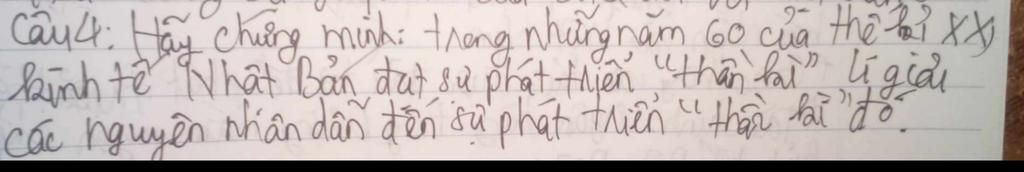 Câu 4: Hãy chứng minh: trong những năm 60 của thế kỉ XX,
kinh tế Nhật Bản đạt sự phát triển "thần kì" lí giải
các nguyên nhân dẫn đến sự phát triển "thần kì" đó.